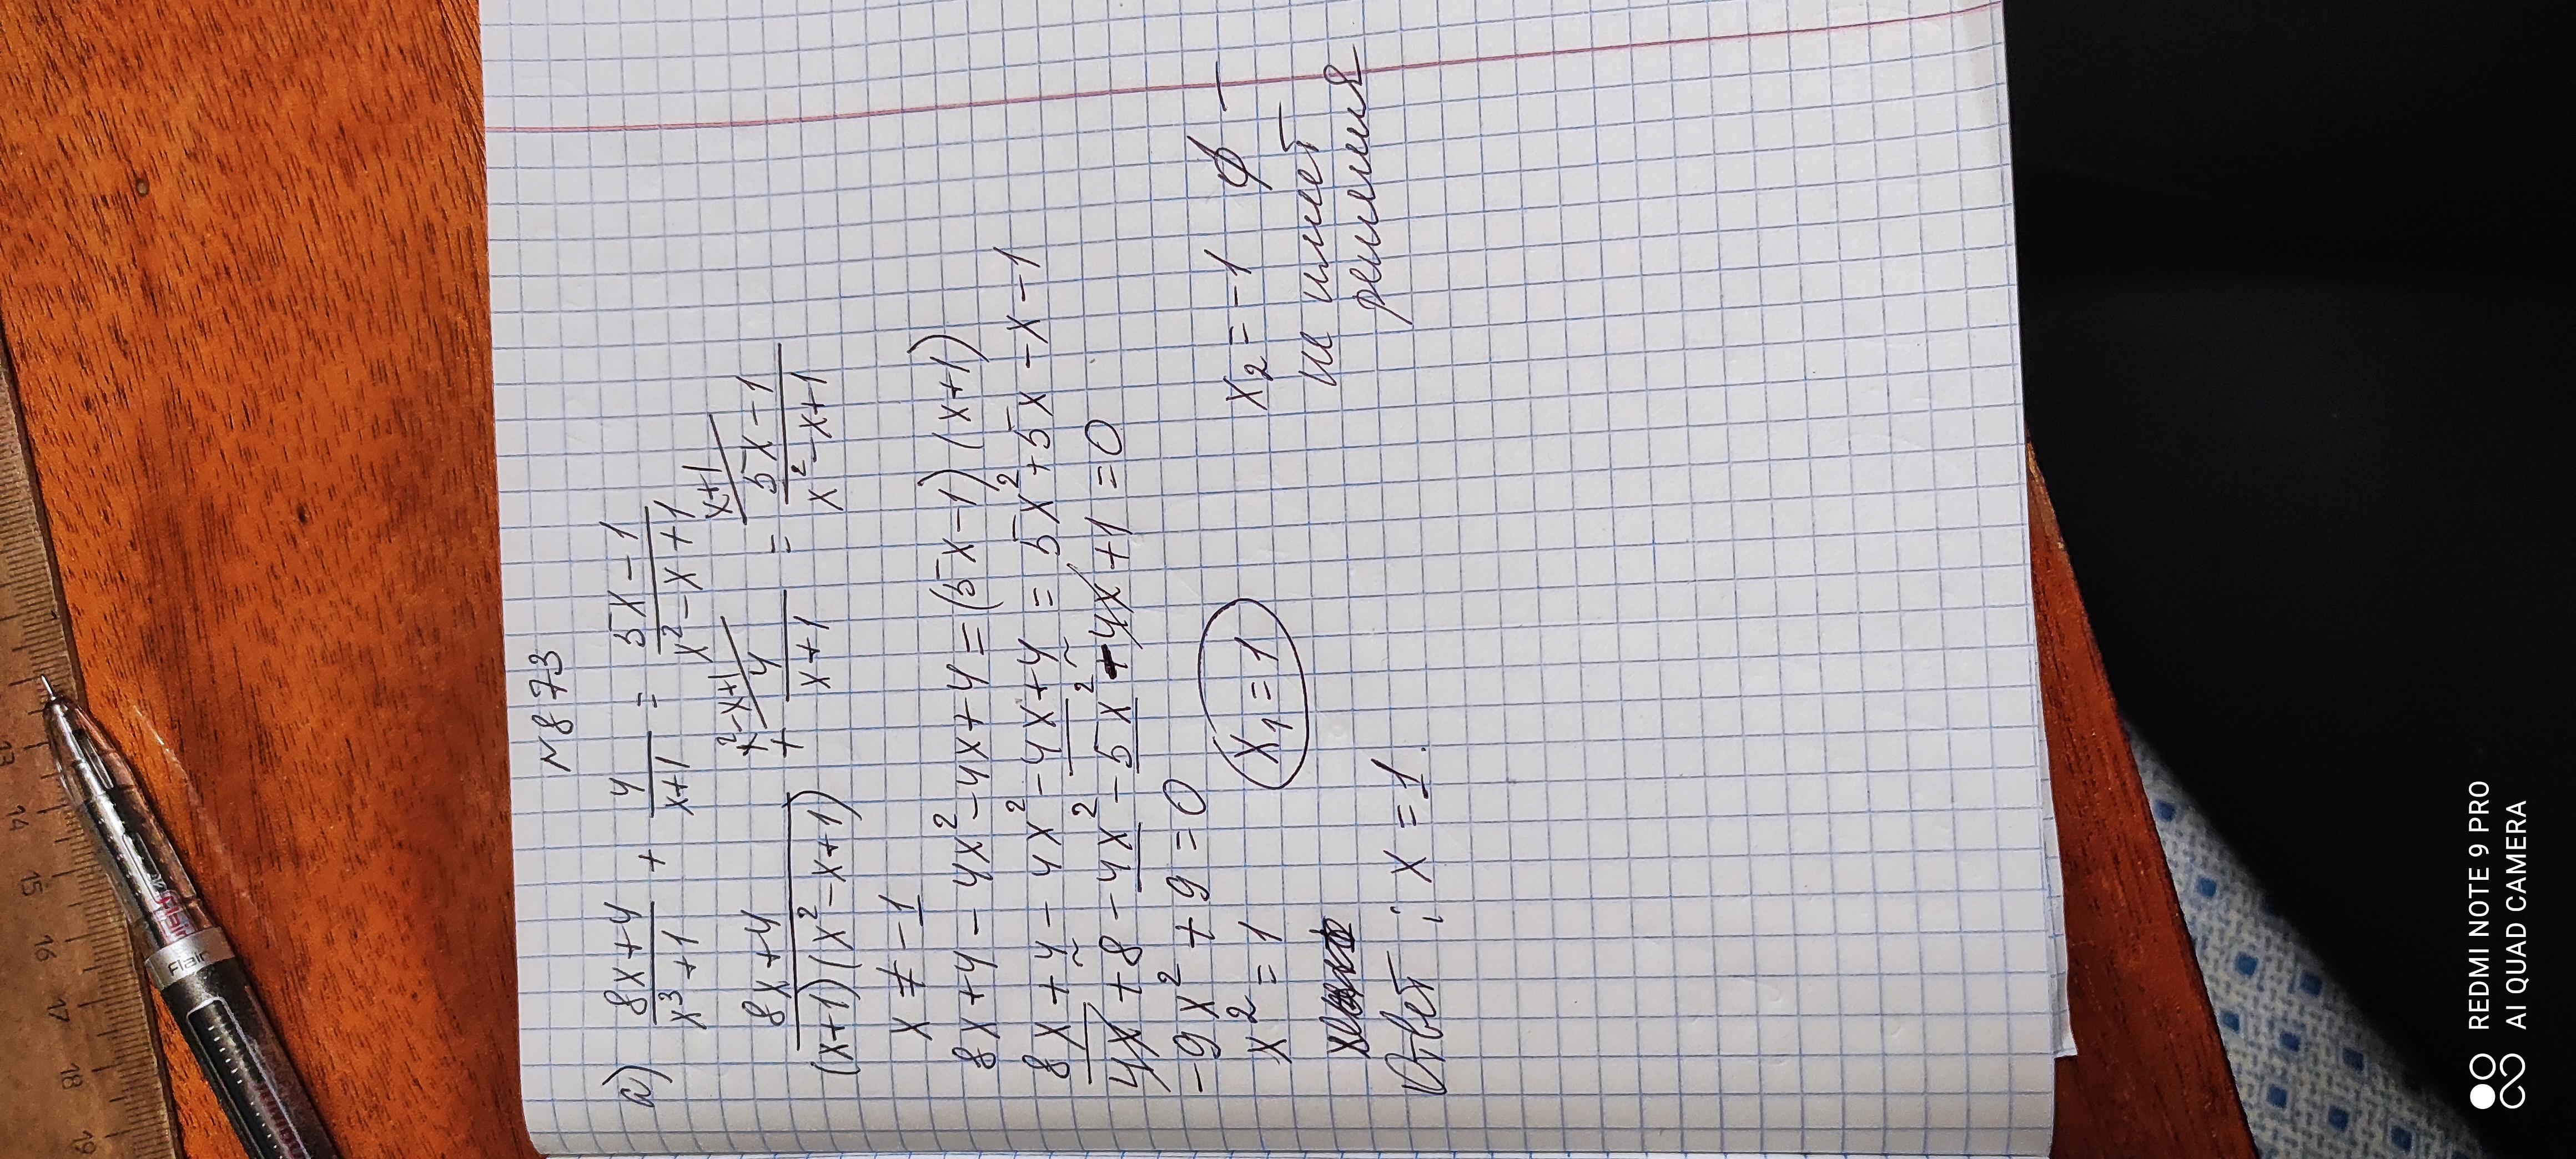 N 873
а) (8x+4)/(x³+1) + 4/(x+1) = (5x-1)/(x²-x+1)
(8x+4)/((x+1)(x²-x+1)) + x²-x+1/ 4/(x+1) = x+1/ (5x-1)/(x²-x+1)
x ≠ -1
8x+4-4x²-4x+4=(5x-1)(x+1)
8x+4-4x²-4x+4=5x²+5x-x-1
4x+8-4x²-5x²-4x+1=0
-9x²+9=0
x²=1
x₁=1
x₂=-1 ∅
не имеет
решения
Ответ: x=1.
Flair
13 14 15 16 17 18 19
REDMI NOTE 9 PRO
AI QUAD CAMERA